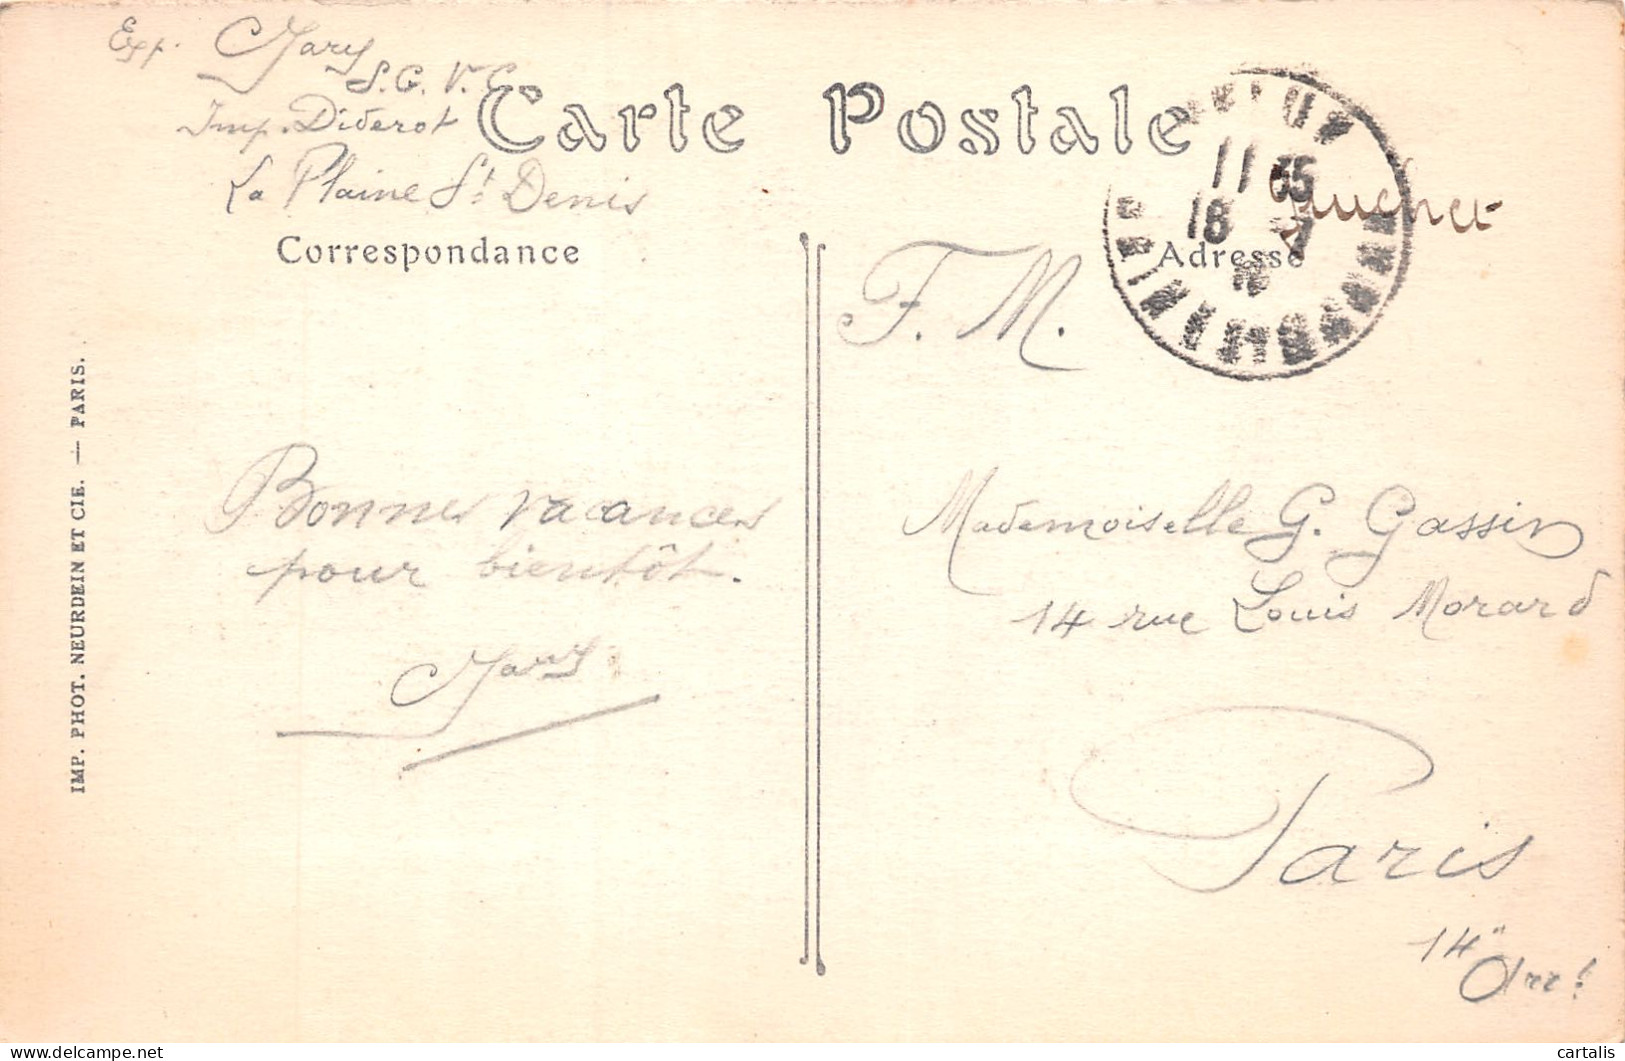 Exp. Mary
S.G.V.C.
Imp. Diderot
La Plaine St Denis
Carte Postale
Correspondance
Adresse
11 35
18
F. M.
Bonnes vacances
pour bientôt.
Mary
Mademoiselle G. Gassin
14 rue Louis Morard
Paris
14" Arrt
IMP. PHOT. NEURDEIN ET CIE. — PARIS.
delcampe.net
cartalis